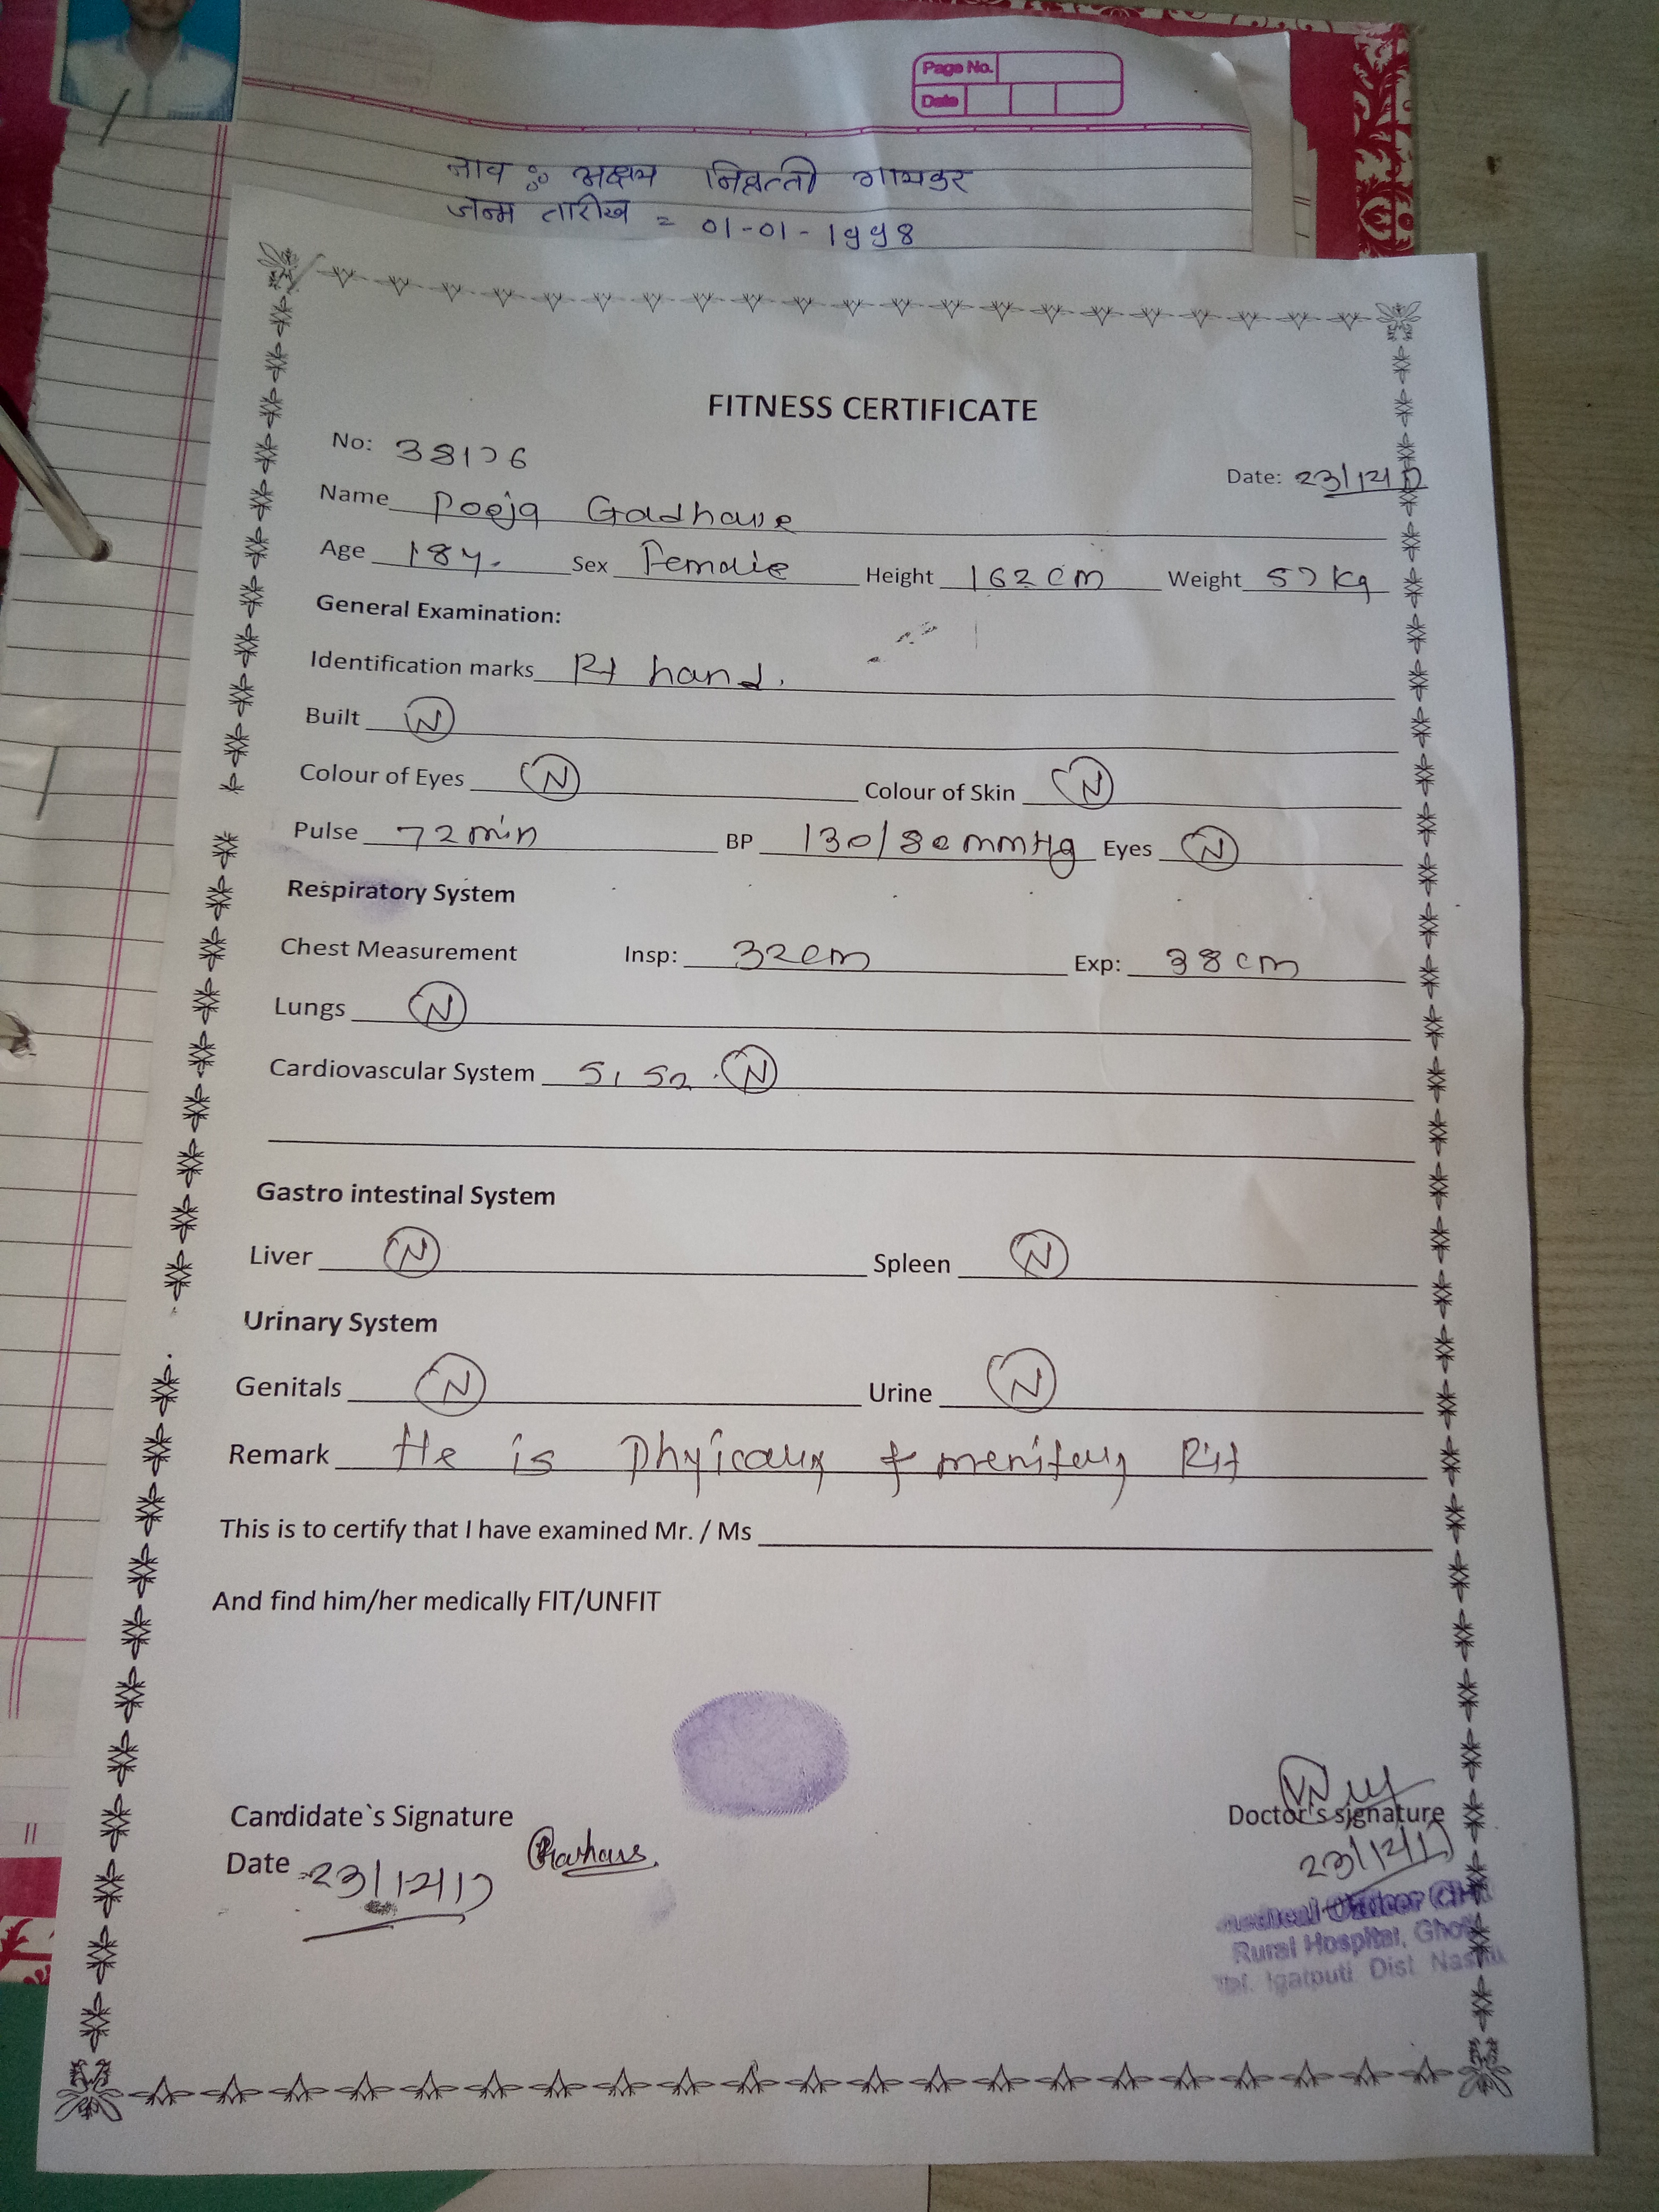 Page No.
Date
नाव ः अक्षय निवृत्ती गायकर
जन्म तारीख = 01-01-1998
FITNESS CERTIFICATE
No: 38176
Date: 23/12/17
Name Pooja Gadhave
Age 18y. Sex Female Height 162 cm Weight 57 kg
General Examination:
Identification marks Rt hand.
Built N
Colour of Eyes N Colour of Skin N
Pulse 72 min BP 130/80 mmHg Eyes N
Respiratory System
Chest Measurement Insp: 32 cm Exp: 38 cm
Lungs N
Cardiovascular System S1 S2 . N
Gastro intestinal System
Liver N Spleen N
Urinary System
Genitals N Urine N
Remark He is Phyically & mentally Fit
This is to certify that I have examined Mr. / Ms
And find him/her medically FIT/UNFIT
Candidate`s Signature Doctor's signature
Date 23/12/17 23/12/17
Medical Officer
Rural Hospital, Ghoti
Tal. Igatputi Dist Nashik